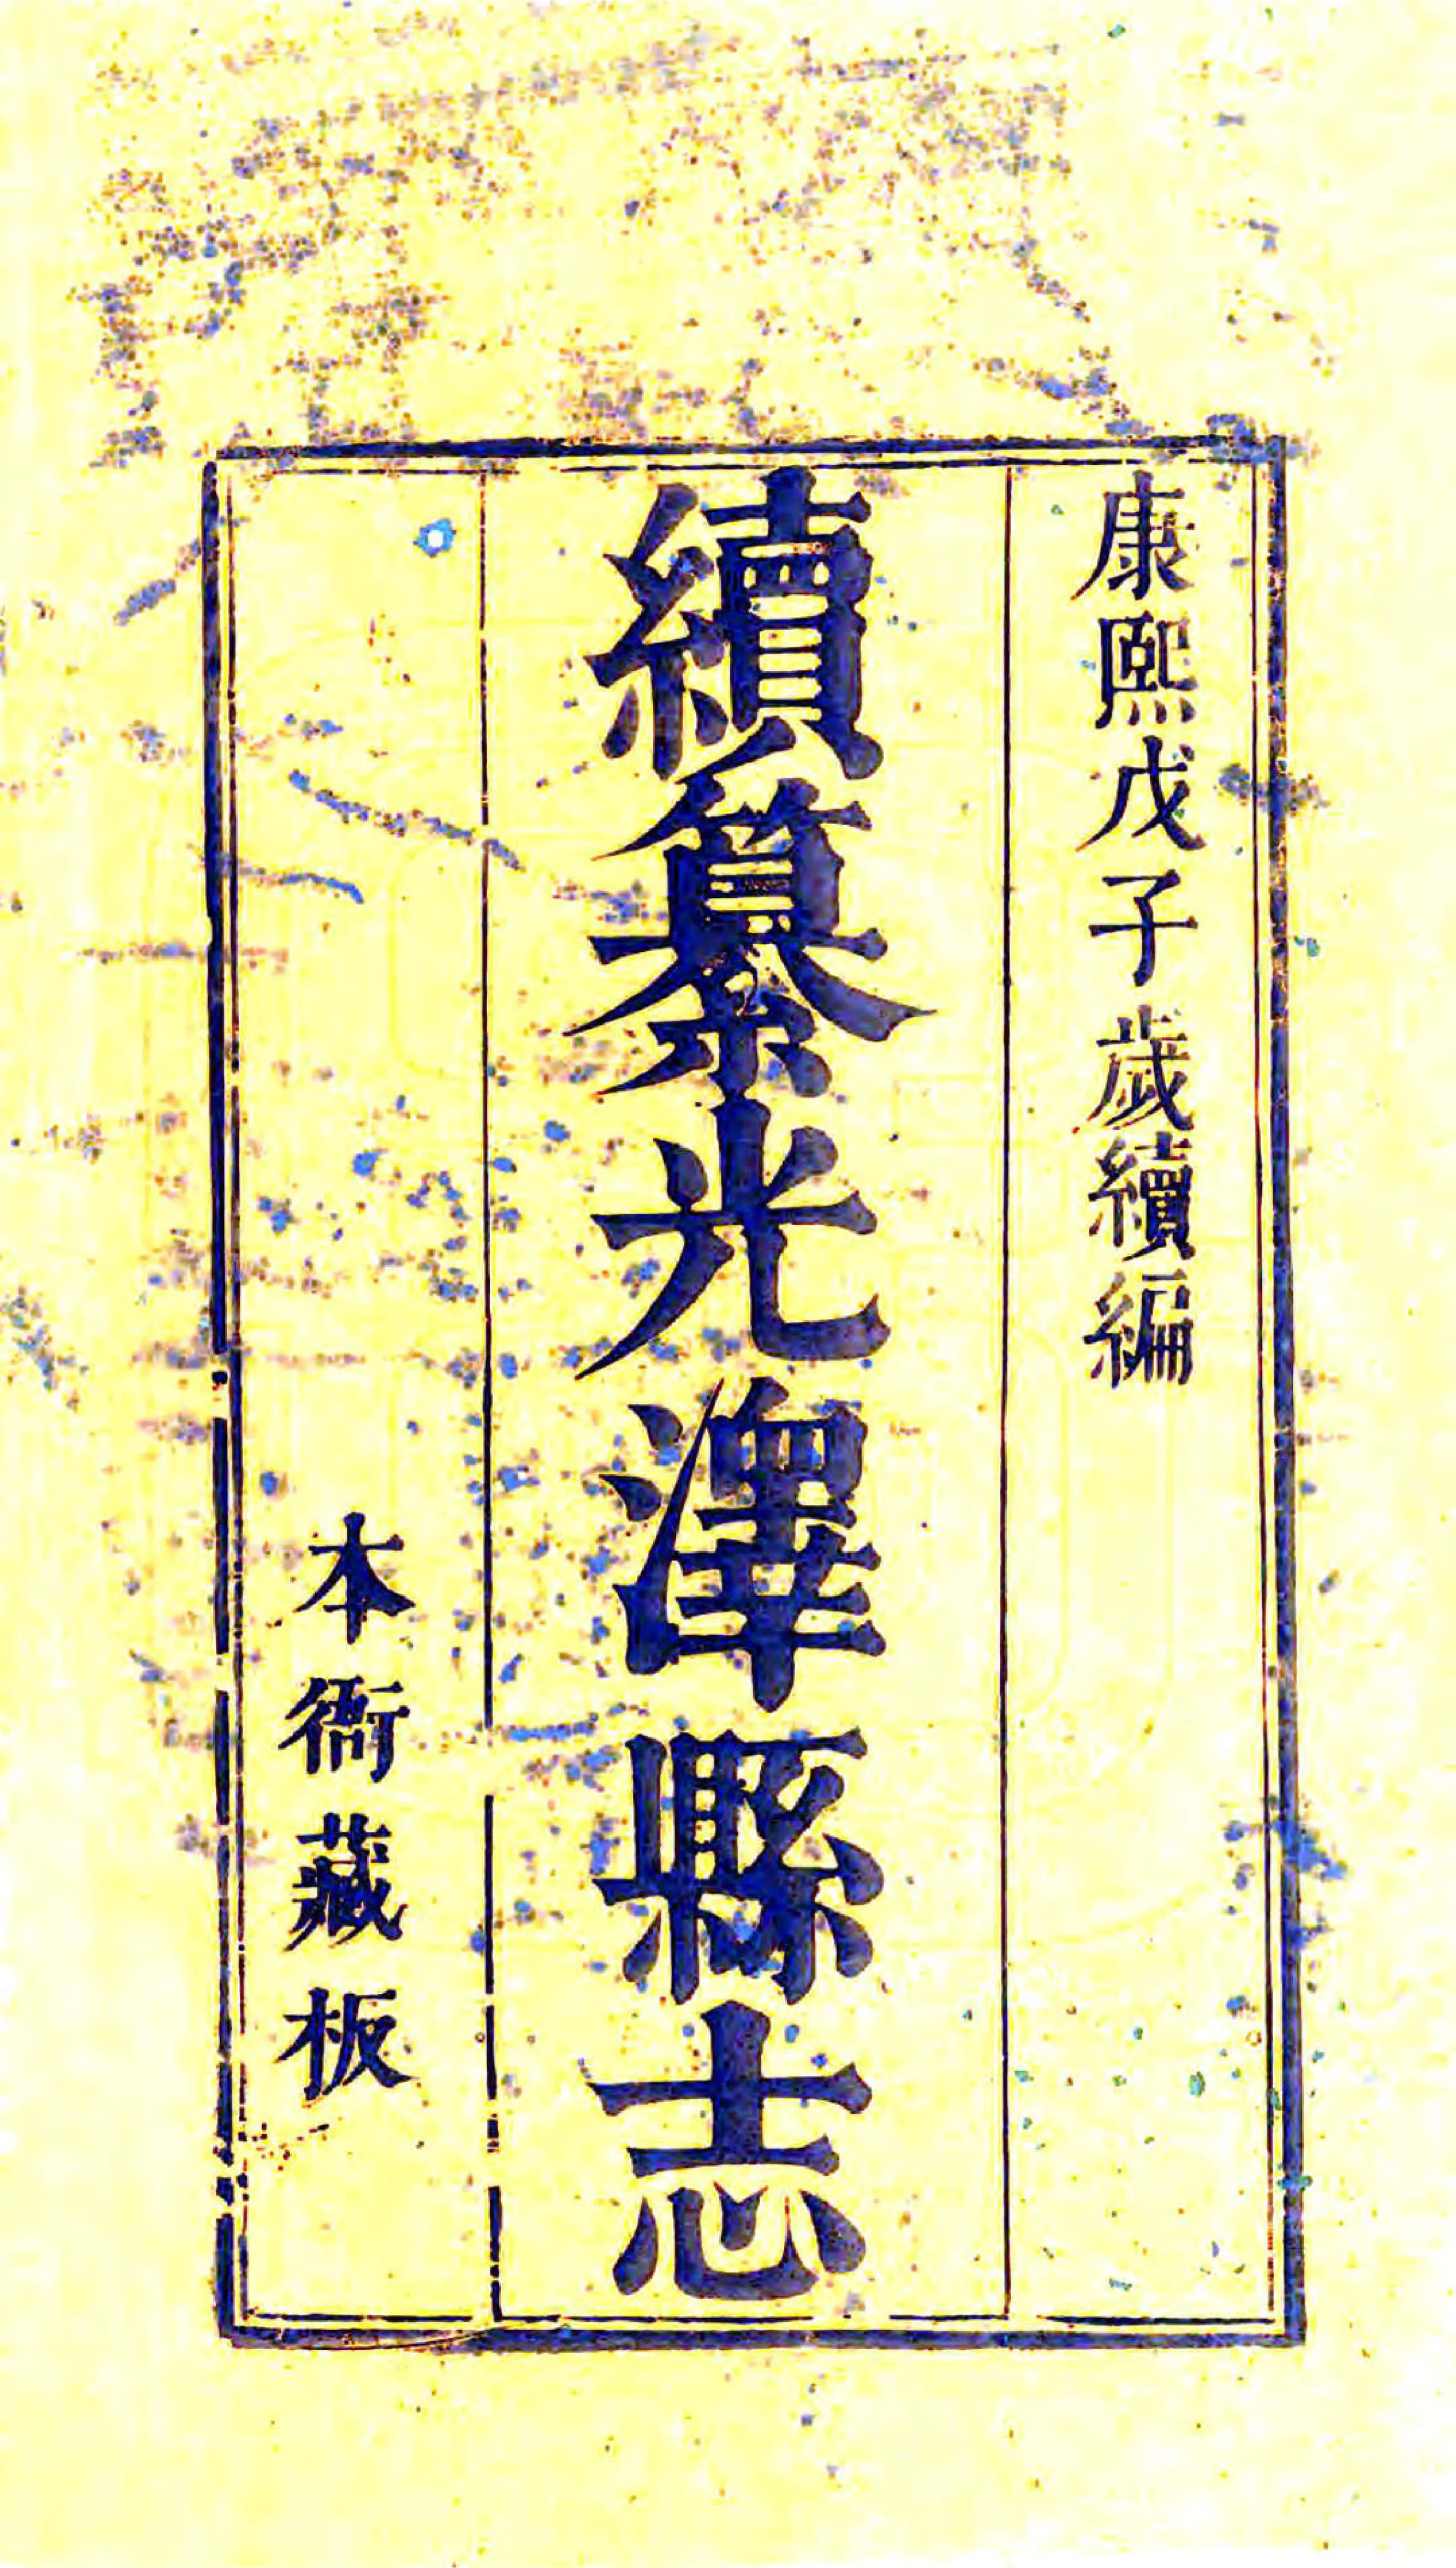 康熙戊子歲續編
續纂光澤縣志
本衙藏板